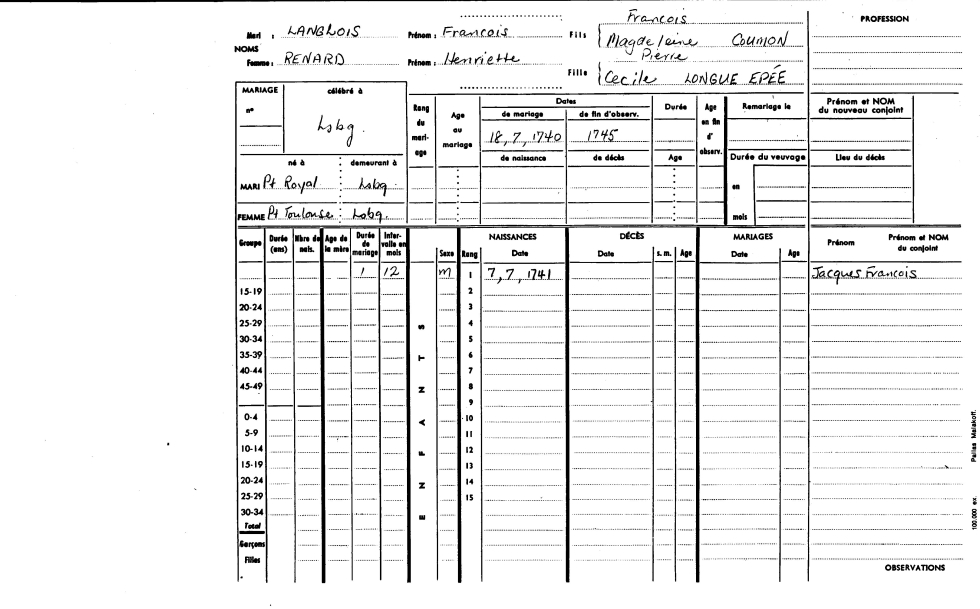 François
PROFESSION
Mari : LANGLOIS Prénom : François Fils Magdeleine COUMON
NOMS
Pierre
Femme : RENARD Prénom : Henriette Fille Cecile LONGUE EPÉE
MARIAGE célébré à
n° Lsbg.
Rang du mariage Age au mariage Dates Durée Age en fin d'observ. Remariage le Prénom et NOM du nouveau conjoint
de mariage de fin d'observ.
18, 7, 1740 1745
de naissance de décès Age Durée du veuvage Lieu du décès
né à demeurant à
MARI Pt Royal Lsbg. en
FEMME Pt Toulouse Lsbg. mois
Groupe Durée (ans) Nbre de nais. Age de la mère Durée de mariage Intervalle en mois ENFANTS Sexe Rang NAISSANCES Date DÉCÈS Date s. m. Age MARIAGES Date Age Prénom Prénom et NOM du conjoint
1 12 m 1 7, 7, 1741 Jacques François
15-19 2
20-24 3
25-29 4
30-34 5
35-39 6
40-44 7
45-49 8
9
0-4 10
5-9 11
10-14 12
15-19 13
20-24 14
25-29 15
30-34
Total
Garçons
Filles
OBSERVATIONS
100.000 ex. Pallas Malakoff.